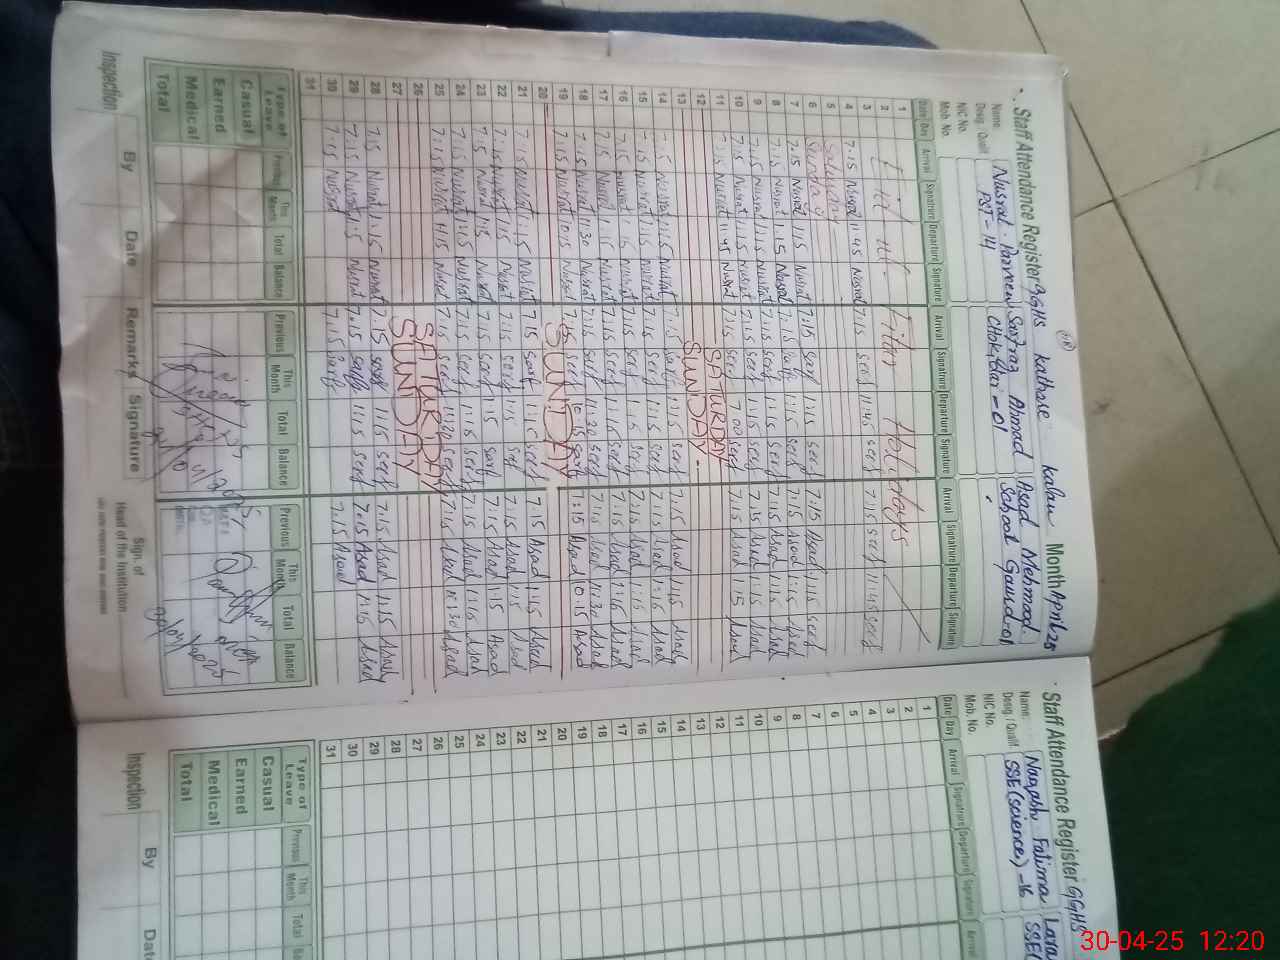 Staff Attendance Register GGHS kathore kalan Month April-25
Name: Nusrat Parveen Sarfraz Ahmad Asad Mehmood
Desig / Quali PST-14 Chokidar-01 School Guard-01
NIC No.
Mob. No.
Date Day Arrival Signature Departure Signature Arrival Signature Departure Signature Arrival Signature Departure Signature
1
2 Eid ul Fiter Holidays
3
4 7:15 Nusrat 11:45 Nusrat 7:15 seef 11:45 seef 7:15 seef 11:45 seef
5 Saturday
6 Sunday
7 7:15 Nusrat 1:15 Nusrat 7:15 sarf 1:15 seef 7:15 Asad 1:15 seef
8 7:15 Nusrat 1:15 Nusrat 7:15 sarf 1:15 seef 7:15 Asad 1:15 Asad
9 7:15 Nusrat 1:15 Nusrat 7:15 seef 1:15 seef 7:15 Asad 1:15 Asad
10 7:15 Nusrat 1:15 Nusrat 7:15 seef 1:15 seef 7:15 Asad 1:15 Asad
11 7:15 Nusrat 11:45 Nusrat 7:15 seef seef 7:15 Asad 1:15 Asad
12 SATURDAY
13 SUNDAY
14 7:15 Nusrat 1:15 Nusrat 7:15 sarf 1:15 seef 7:15 Asad 1:15 Asad
15 7:15 Nusrat 1:15 Nusrat 7:15 seef 1:15 seef 7:15 Asad 1:15 Asad
16 7:15 Nusrat 1:15 Nusrat 7:15 seef 1:15 seef 7:15 Asad 1:15 Asad
17 7:15 Nusrat 1:15 Nusrat 7:15 seef 1:15 seef 7:15 Asad 1:15 Asad
18 7:15 Nusrat 11:30 Nusrat 7:15 seef 11:30 seef 7:15 Asad 11:30 Asad
19 7:15 Nusrat 10:15 Nusrat 7:15 seef 10:15 sarf 7:15 Asad 10:15 Asad
20 SUNDAY
21 7:15 Nusrat 1:15 Nusrat 7:15 sarf 1:15 seef 7:15 Asad 1:15 Asad
22 7:15 Nusrat 1:15 Nusrat 7:15 seef 1:15 seef 7:15 Asad 1:15 Asad
23 7:15 Nusrat 1:15 Nusrat 7:15 seef 1:15 sarf 7:15 Asad 1:15 Asad
24 7:15 Nusrat 1:15 Nusrat 7:15 seef 1:15 seef 7:15 Asad 1:15 Asad
25 7:15 Nusrat Nusrat 7:15 seef 11:30 seef 7:15 Asad 11:30 Asad
26 SATURDAY
27 SUNDAY
28 7:15 Nusrat 1:15 Nusrat 7:15 seef 1:15 seef 7:15 Asad 1:15 Asad
29 7:15 Nusrat 1:15 Nusrat 7:15 sarf 1:15 seef 7:15 Asad 1:15 Asad
30 7:15 Nusrat 7:15 sarf 7:15 Asad
31
Type of Leave Previous This Month Total Balance Previous This Month Total Balance Previous This Month Total Balance
Casual
Earned
Medical
Total
Inspection By Date Remarks Signature Sign. of Head of the Institution
Staff Attendance Register GGHS
Name: Naqabu Fatima
Desig / Quali SSE (science) -16 SSE(
NIC No.
Mob. No.
Date Day Arrival Signature Departure Signature Arrival
1
2
3
4
5
6
7
8
9
10
11
12
13
14
15
16
17
18
19
20
21
22
23
24
25
26
27
28
29
30
31
Type of Leave Previous This Month Total
Casual
Earned
Medical
Total
Inspection By
30-04-25 12:20